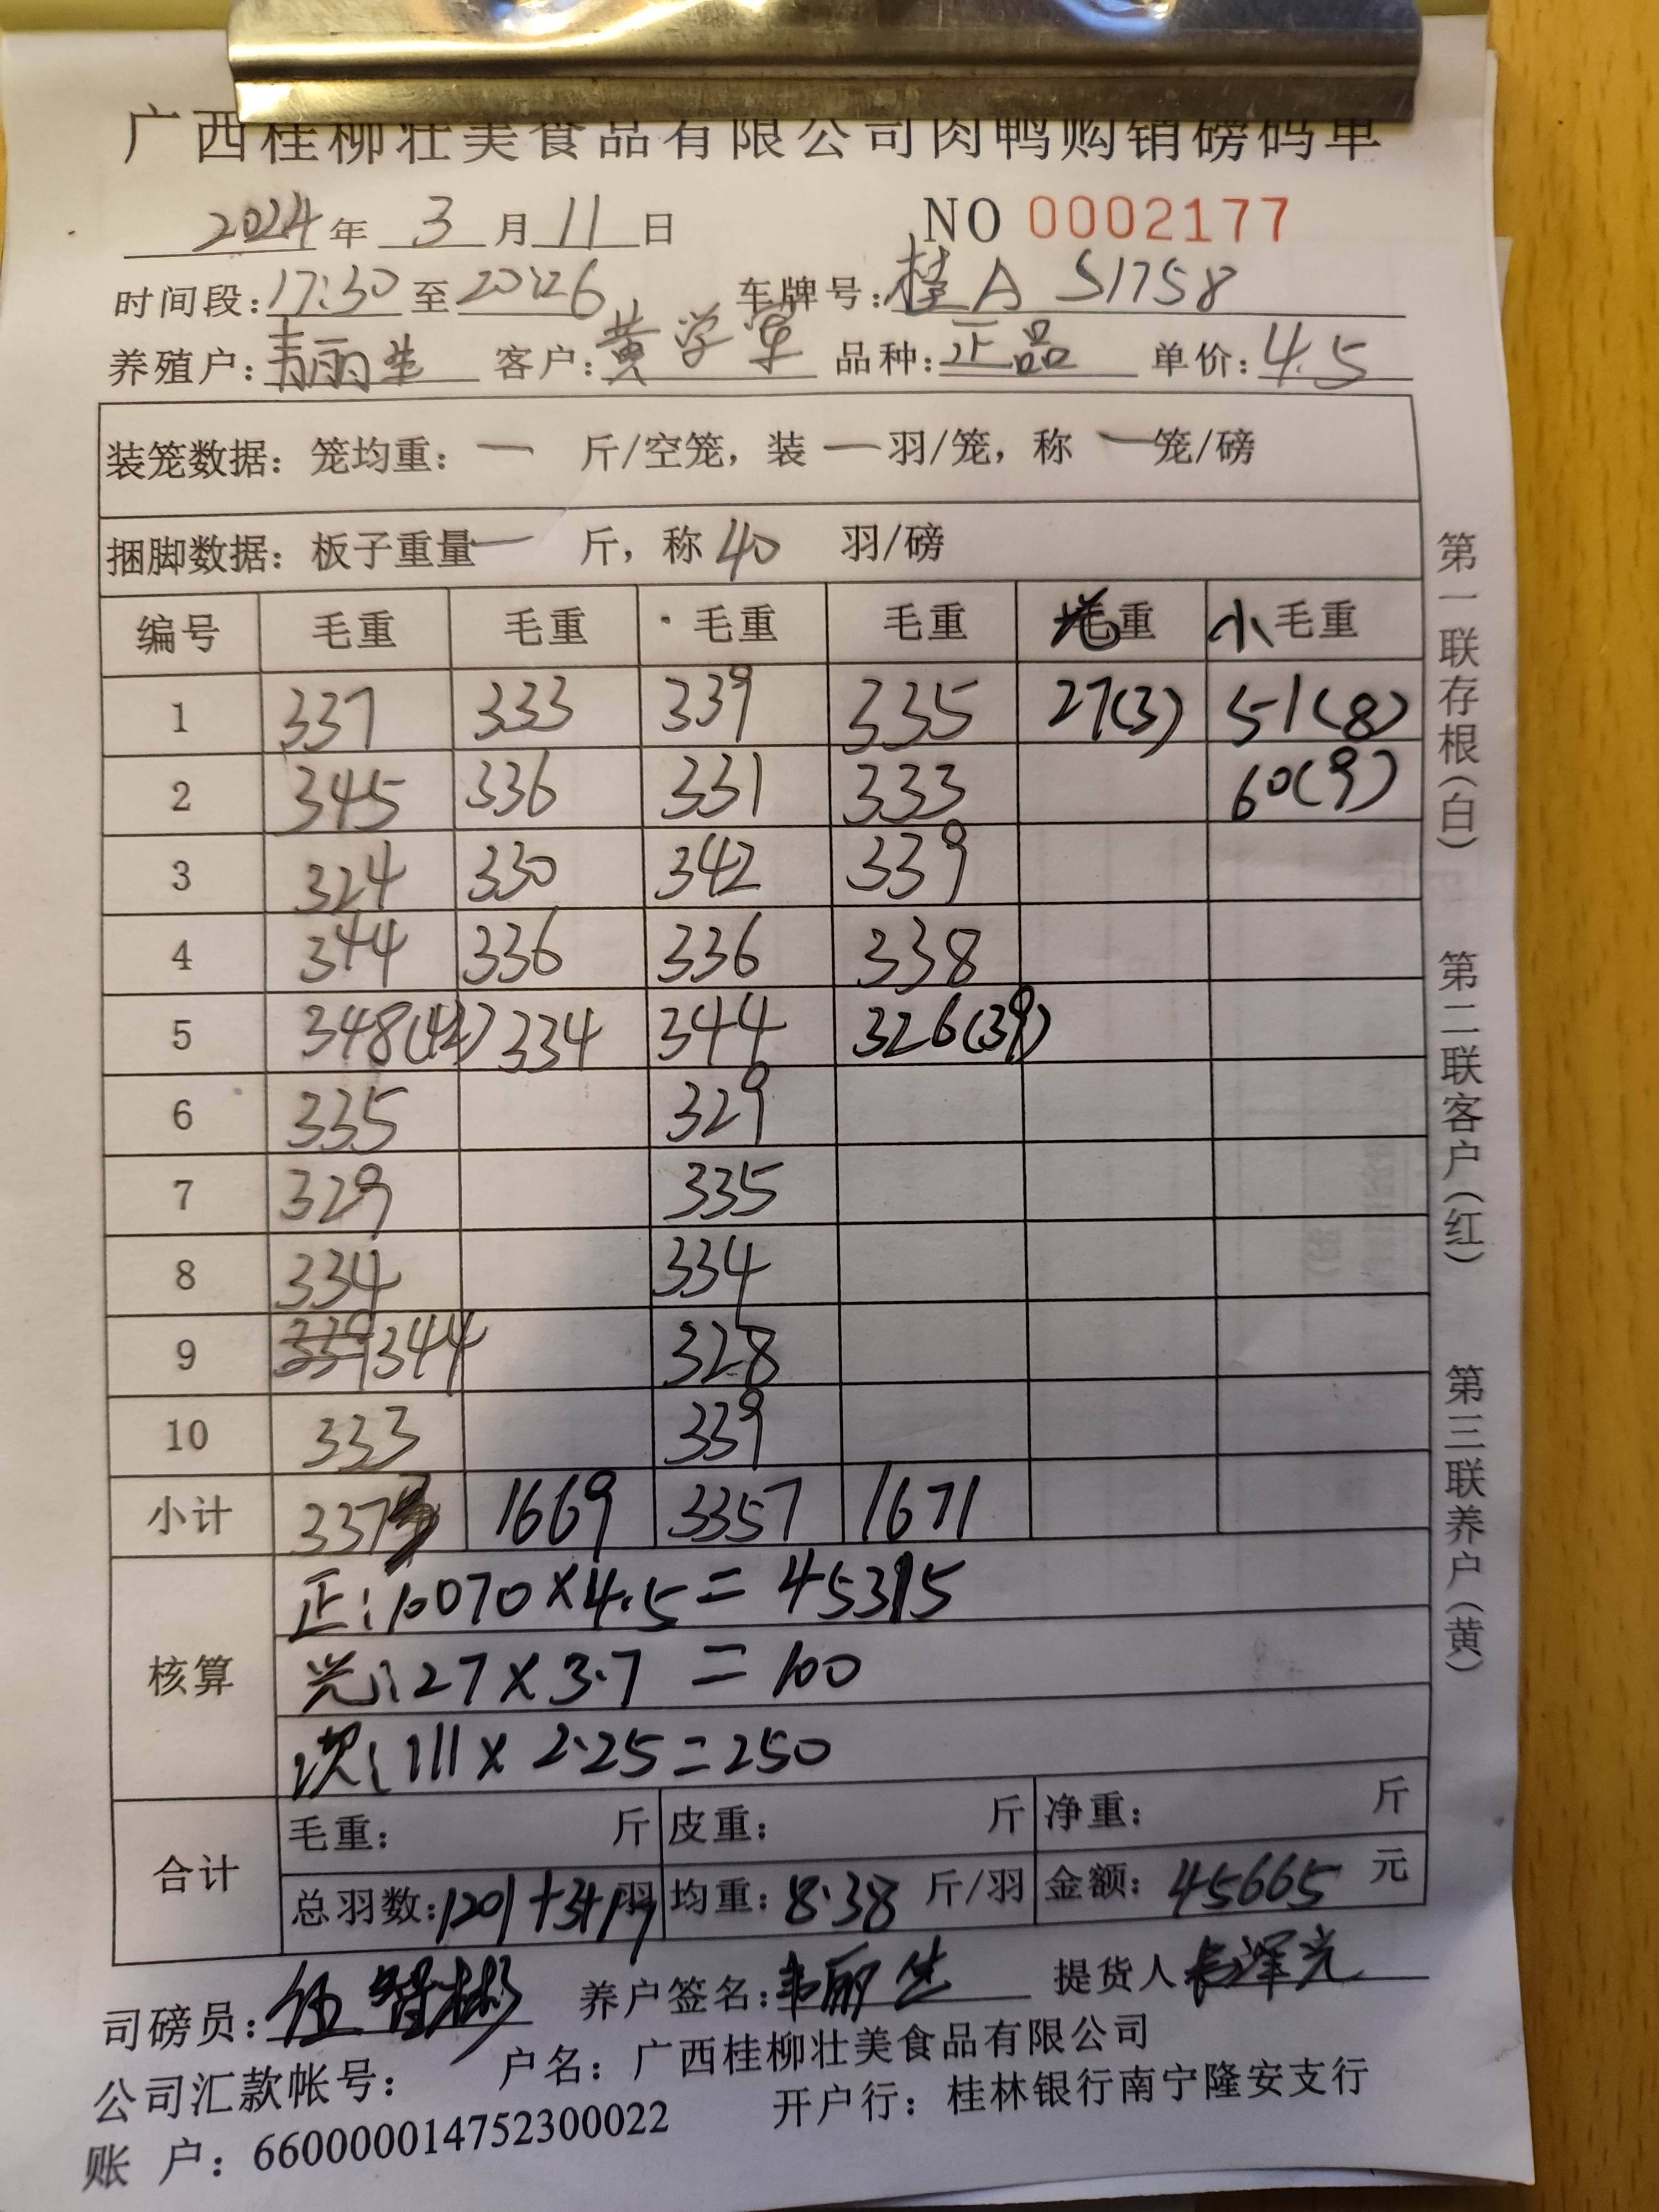 广西桂柳壮美食品有限公司肉鸭购销磅码单
2024年 3 月 11 日 NO 0002177
时间段:17:30 至 20:26 车牌号:桂A S1758
养殖户:韦丽生 客户:黄学军 品种:正品 单价:4.5
装笼数据: 笼均重: — 斤/空笼, 装 — 羽/笼, 称 — 笼/磅
捆脚数据: 板子重量 — 斤, 称 40 羽/磅
编号 毛重 毛重 毛重 毛重 光重 小毛重
1 337 333 339 335 27(3) 51(8)
2 345 336 331 333 60(9)
3 324 330 342 339
4 344 336 336 338
5 348(42) 334 344 326(39)
6 335 329
7 329 335
8 334 334
9 339 344 328
10 333 339
小计 3373 1669 3357 1671
核算
正:10070×4.5=45315
光:27×3.7=100
次:111×2.25=250
合计
毛重: 斤 皮重: 斤 净重: 斤
总羽数:1201+3+17羽 均重:8.38 斤/羽 金额:45665 元
司磅员:伍 彬 养户签名:韦丽生 提货人 光
公司汇款帐号: 户名:广西桂柳壮美食品有限公司
账 户:660000014752300022 开户行:桂林银行南宁隆安支行
第一联存根(白)
第二联客户(红)
第三联养户(黄)